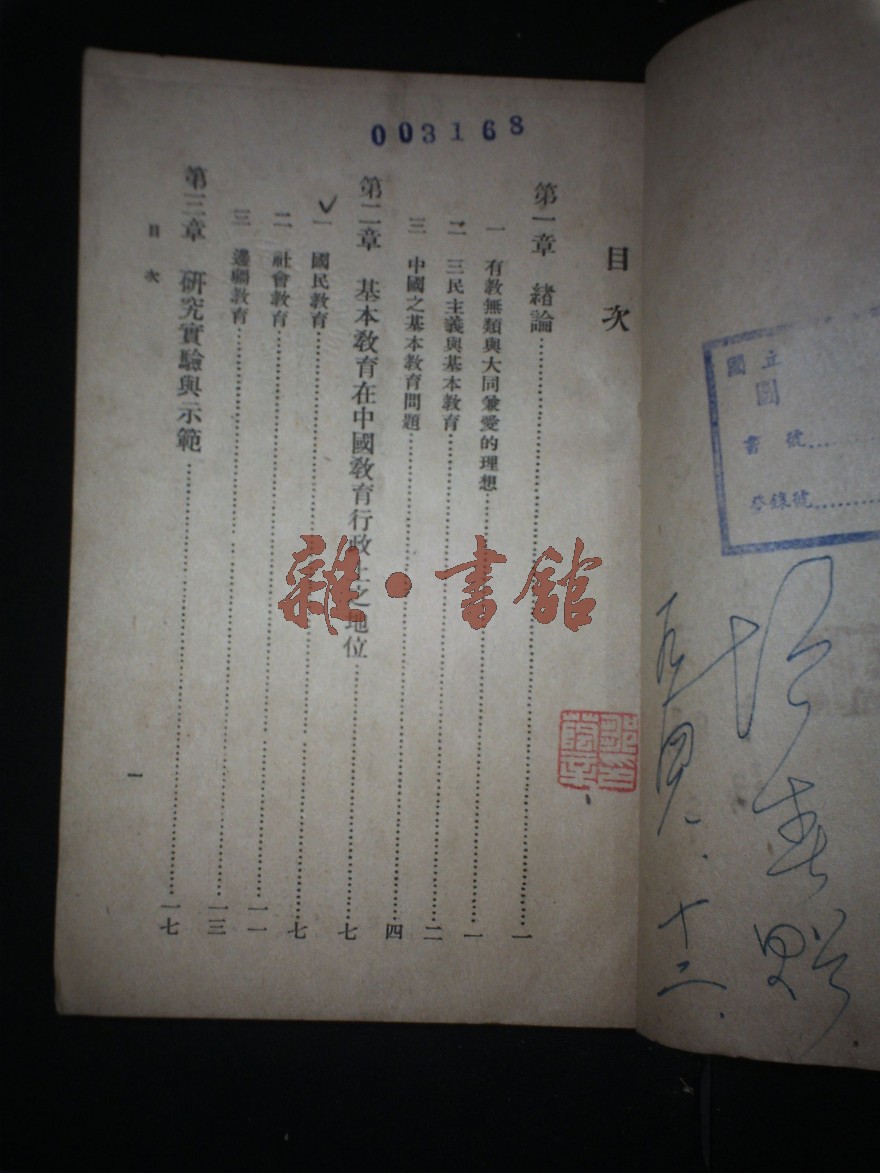 003168
目次
第一章 緒論……一
一 有教無類與大同兼愛的理想……一
二 三民主義與基本教育……二
三 中國之基本教育問題……四
第二章 基本教育在中國教育行政上之地位……七
一 國民教育……七
二 社會教育……一一
三 邊疆教育……一三
第三章 研究實驗與示範……一七
目次
一
雜·書館
國立
圖
書號……
登錄號……
十二